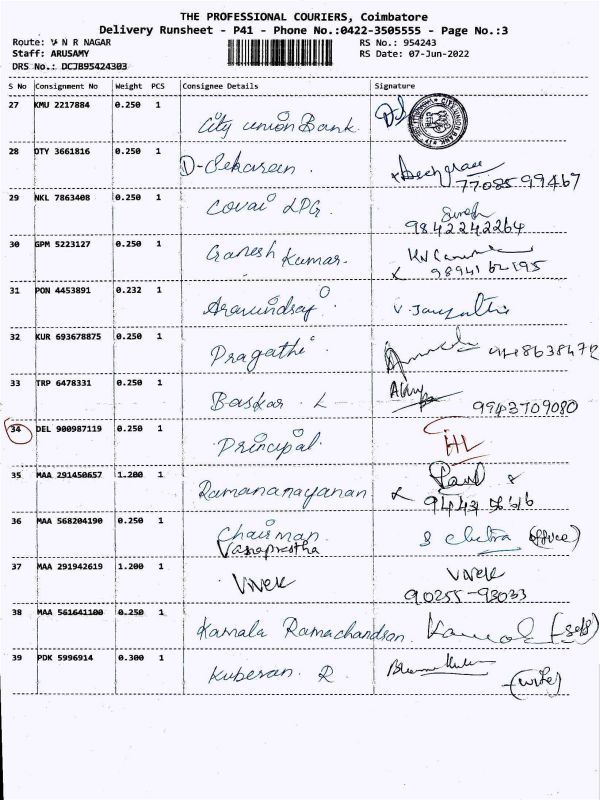 THE PROFESSIONAL COURIERS, Coimbatore
Delivery Runsheet - P41 - Phone No.:0422-3505555 - Page No.:3
Route: V N R NAGAR
RS No.: 954243
Staff: ARUSAMY
RS Date: 07-Jun-2022
DRS No.: DCJB95424303
S No Consignment No Weight PCS Consignee Details Signature
27 KMU 2217884 0.250 1 City union Bank
28 OTY 3661816 0.250 1 D-Sekaran.
7708599467
29 NKL 7863408 0.250 1 Covai LPG.
9842242264
30 GPM 5223127 0.250 1 Ganesh Kumar.
9894162195
31 PON 4453891 0.232 1 Aravindraj
32 KUR 693678875 0.250 1 Pragathi
33 TRP 6478331 0.250 1 Baskar. L
9943709080
34 DEL 900987119 0.250 1 Principal.
35 MAA 291450657 1.200 1 Ramananayanan
36 MAA 568204190 0.250 1 Chairman. S Chitra (office)
Vanaprastha
37 MAA 291942619 1.200 1 Vivek Vivek
90255-93033
38 MAA 561641100 0.250 1 Kamala Ramachandran. (self)
39 PDK 5996914 0.300 1 Kuberan. R
(wife)